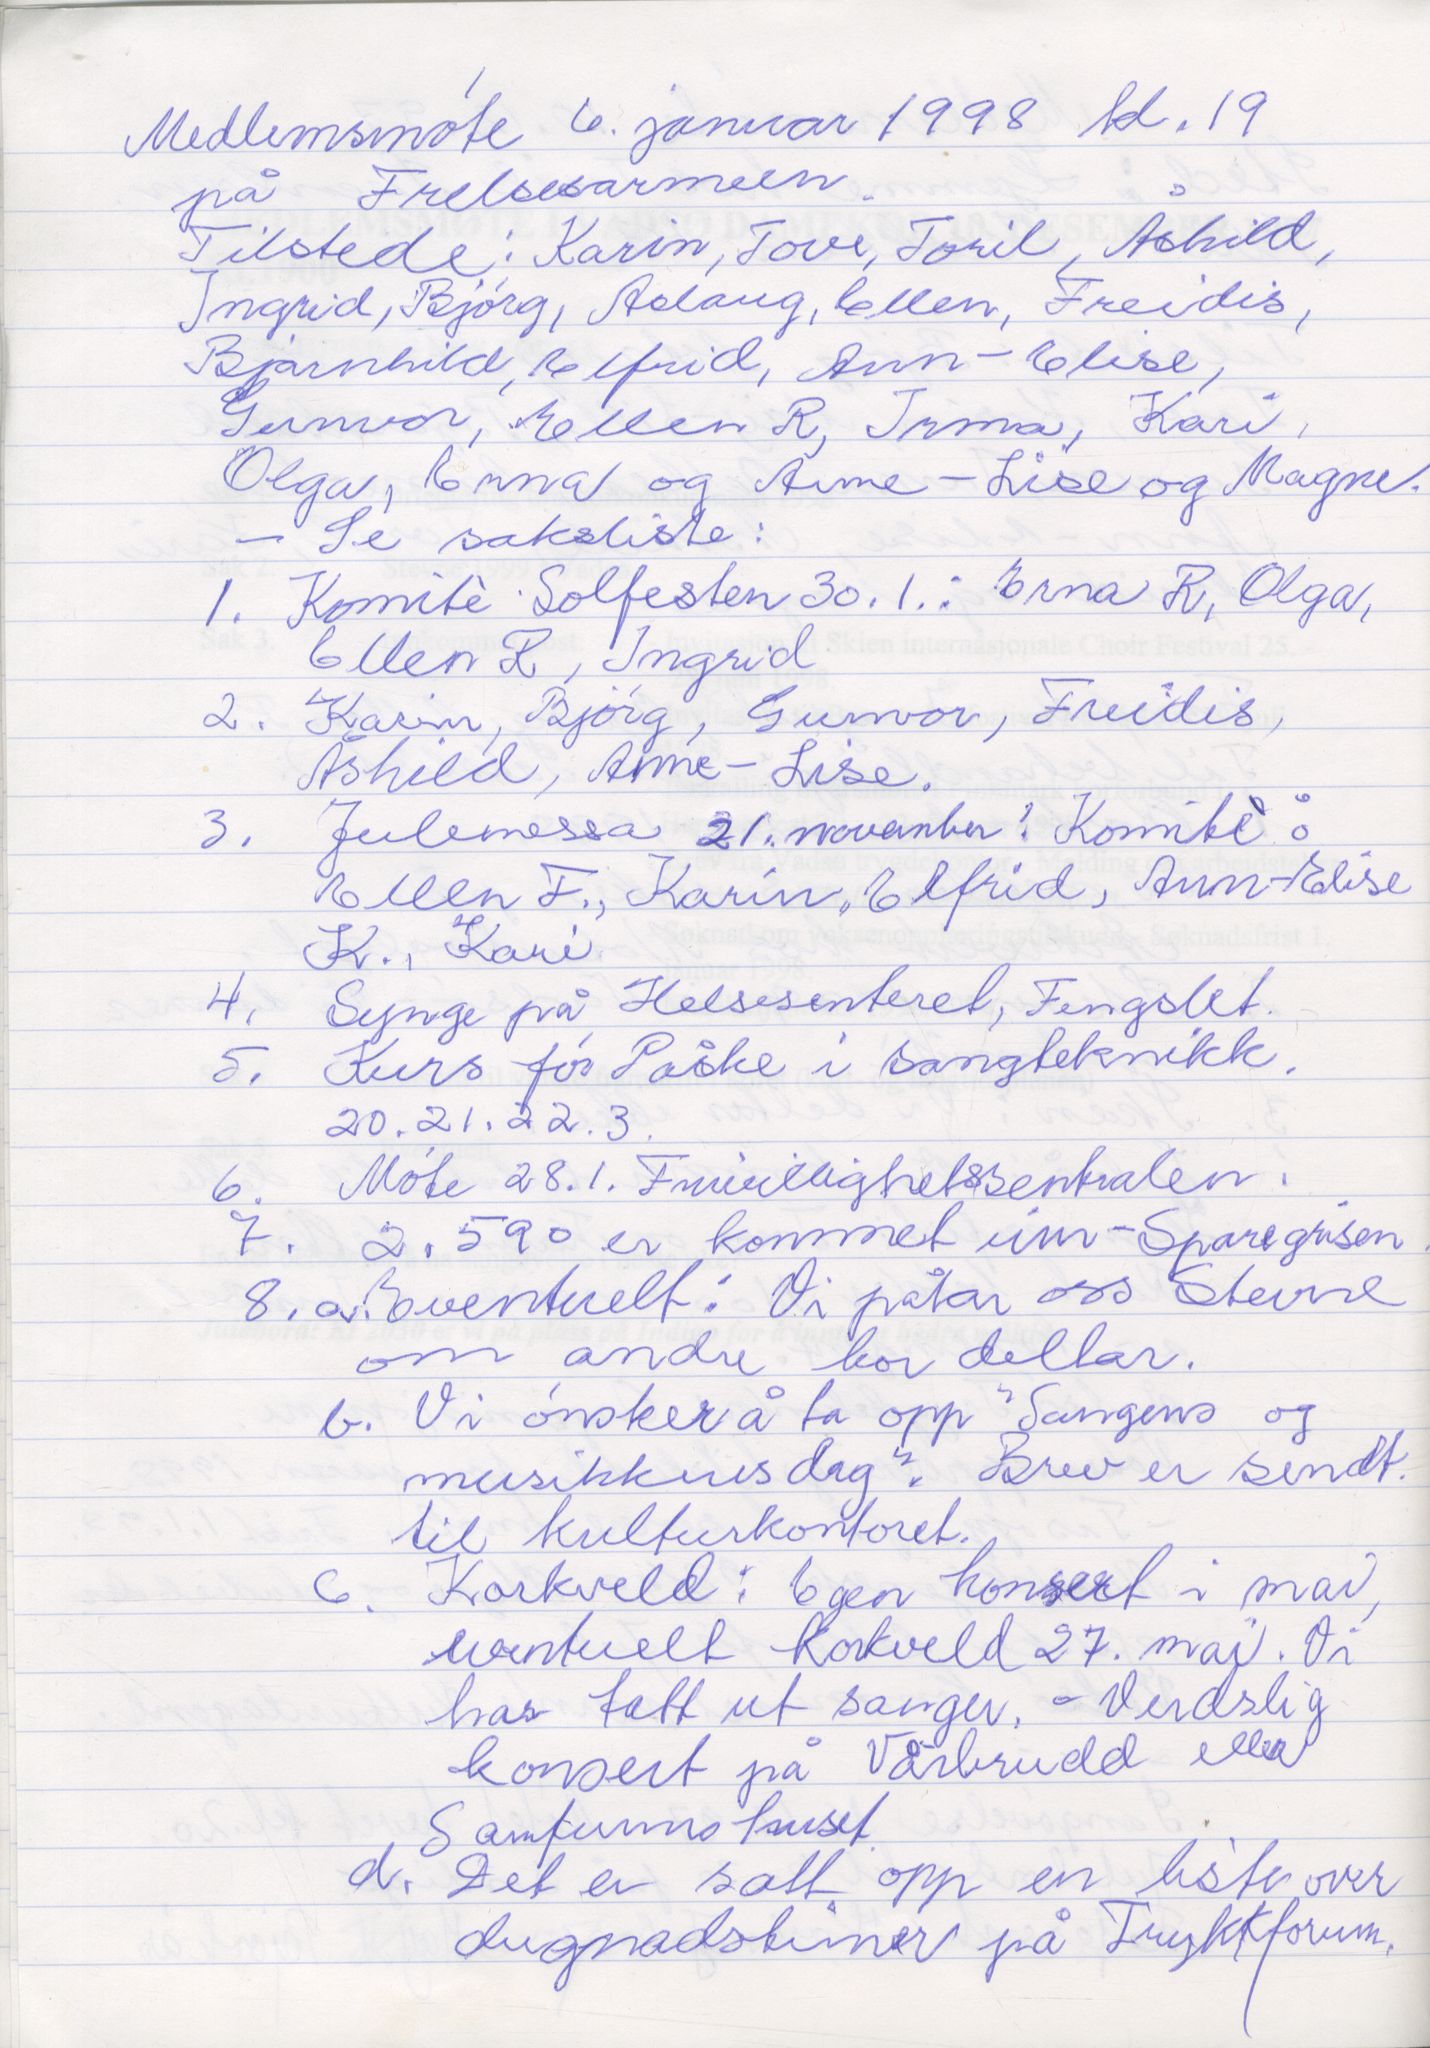 Medlemsmóte 6. januar 1998 kl. 19
på Frelsesarmeen
Tilstede: Karin, Tove, Toril, Åshild,
Ingrid, Bjórg, Aslaug, Ellen, Freidis,
Bjarnhild, Elfrid, Ann-Elise,
Gunvor, Ellen R, Irma, Kari,
Olga, Erna og Anne-Lise og Magne.
- Se saksliste:
1. Komitè Solfesten 30.1.: Erna R, Olga,
Ellen R, Ingrid
2. Karin, Bjórg, Gunvor, Freidis,
Åshild, Anne-Lise.
3. Julemessa 21. november: Komitè:
Ellen F., Karin, Elfrid, Ann-Elise
K., Kari.
4. Synge på Helsesenteret, Fengslet.
5. Kurs fór Påske i sangteknikk.
20.21.22.3.
6. Móte 28.1. Frivillighetssentralen.
7. 2.590 er kommet inn - Sparegrisen.
8. a. Eventuelt: Vi påtar oss Stevne
om andre kor deltar.
b. Vi ónsker å ta opp "Sangens og
musikkens dag". Brev er sendt
til kulturkontoret.
c. Korkveld: Egen konsert i mai,
eventuelt Korkveld 27. mai. Vi
har tatt ut sanger. - Verdslig
konsert på Vårbrudd eller
Samfunnshuset.
d. Det er satt opp en liste over
dugnadstimer på Trykkforum.